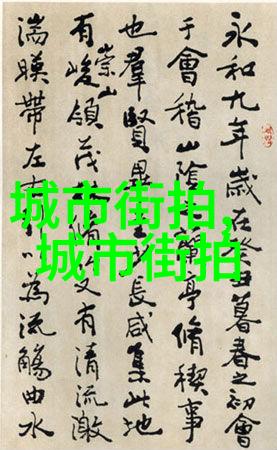 永和九年歲在癸丑暮春之初會
于會稽山陰蘭亭脩稧事
也羣賢畢長咸集此地
有崇山峻領茂脩又有清流激
湍暎帶左以為流觴曲水
城市街拍,
城市街拍